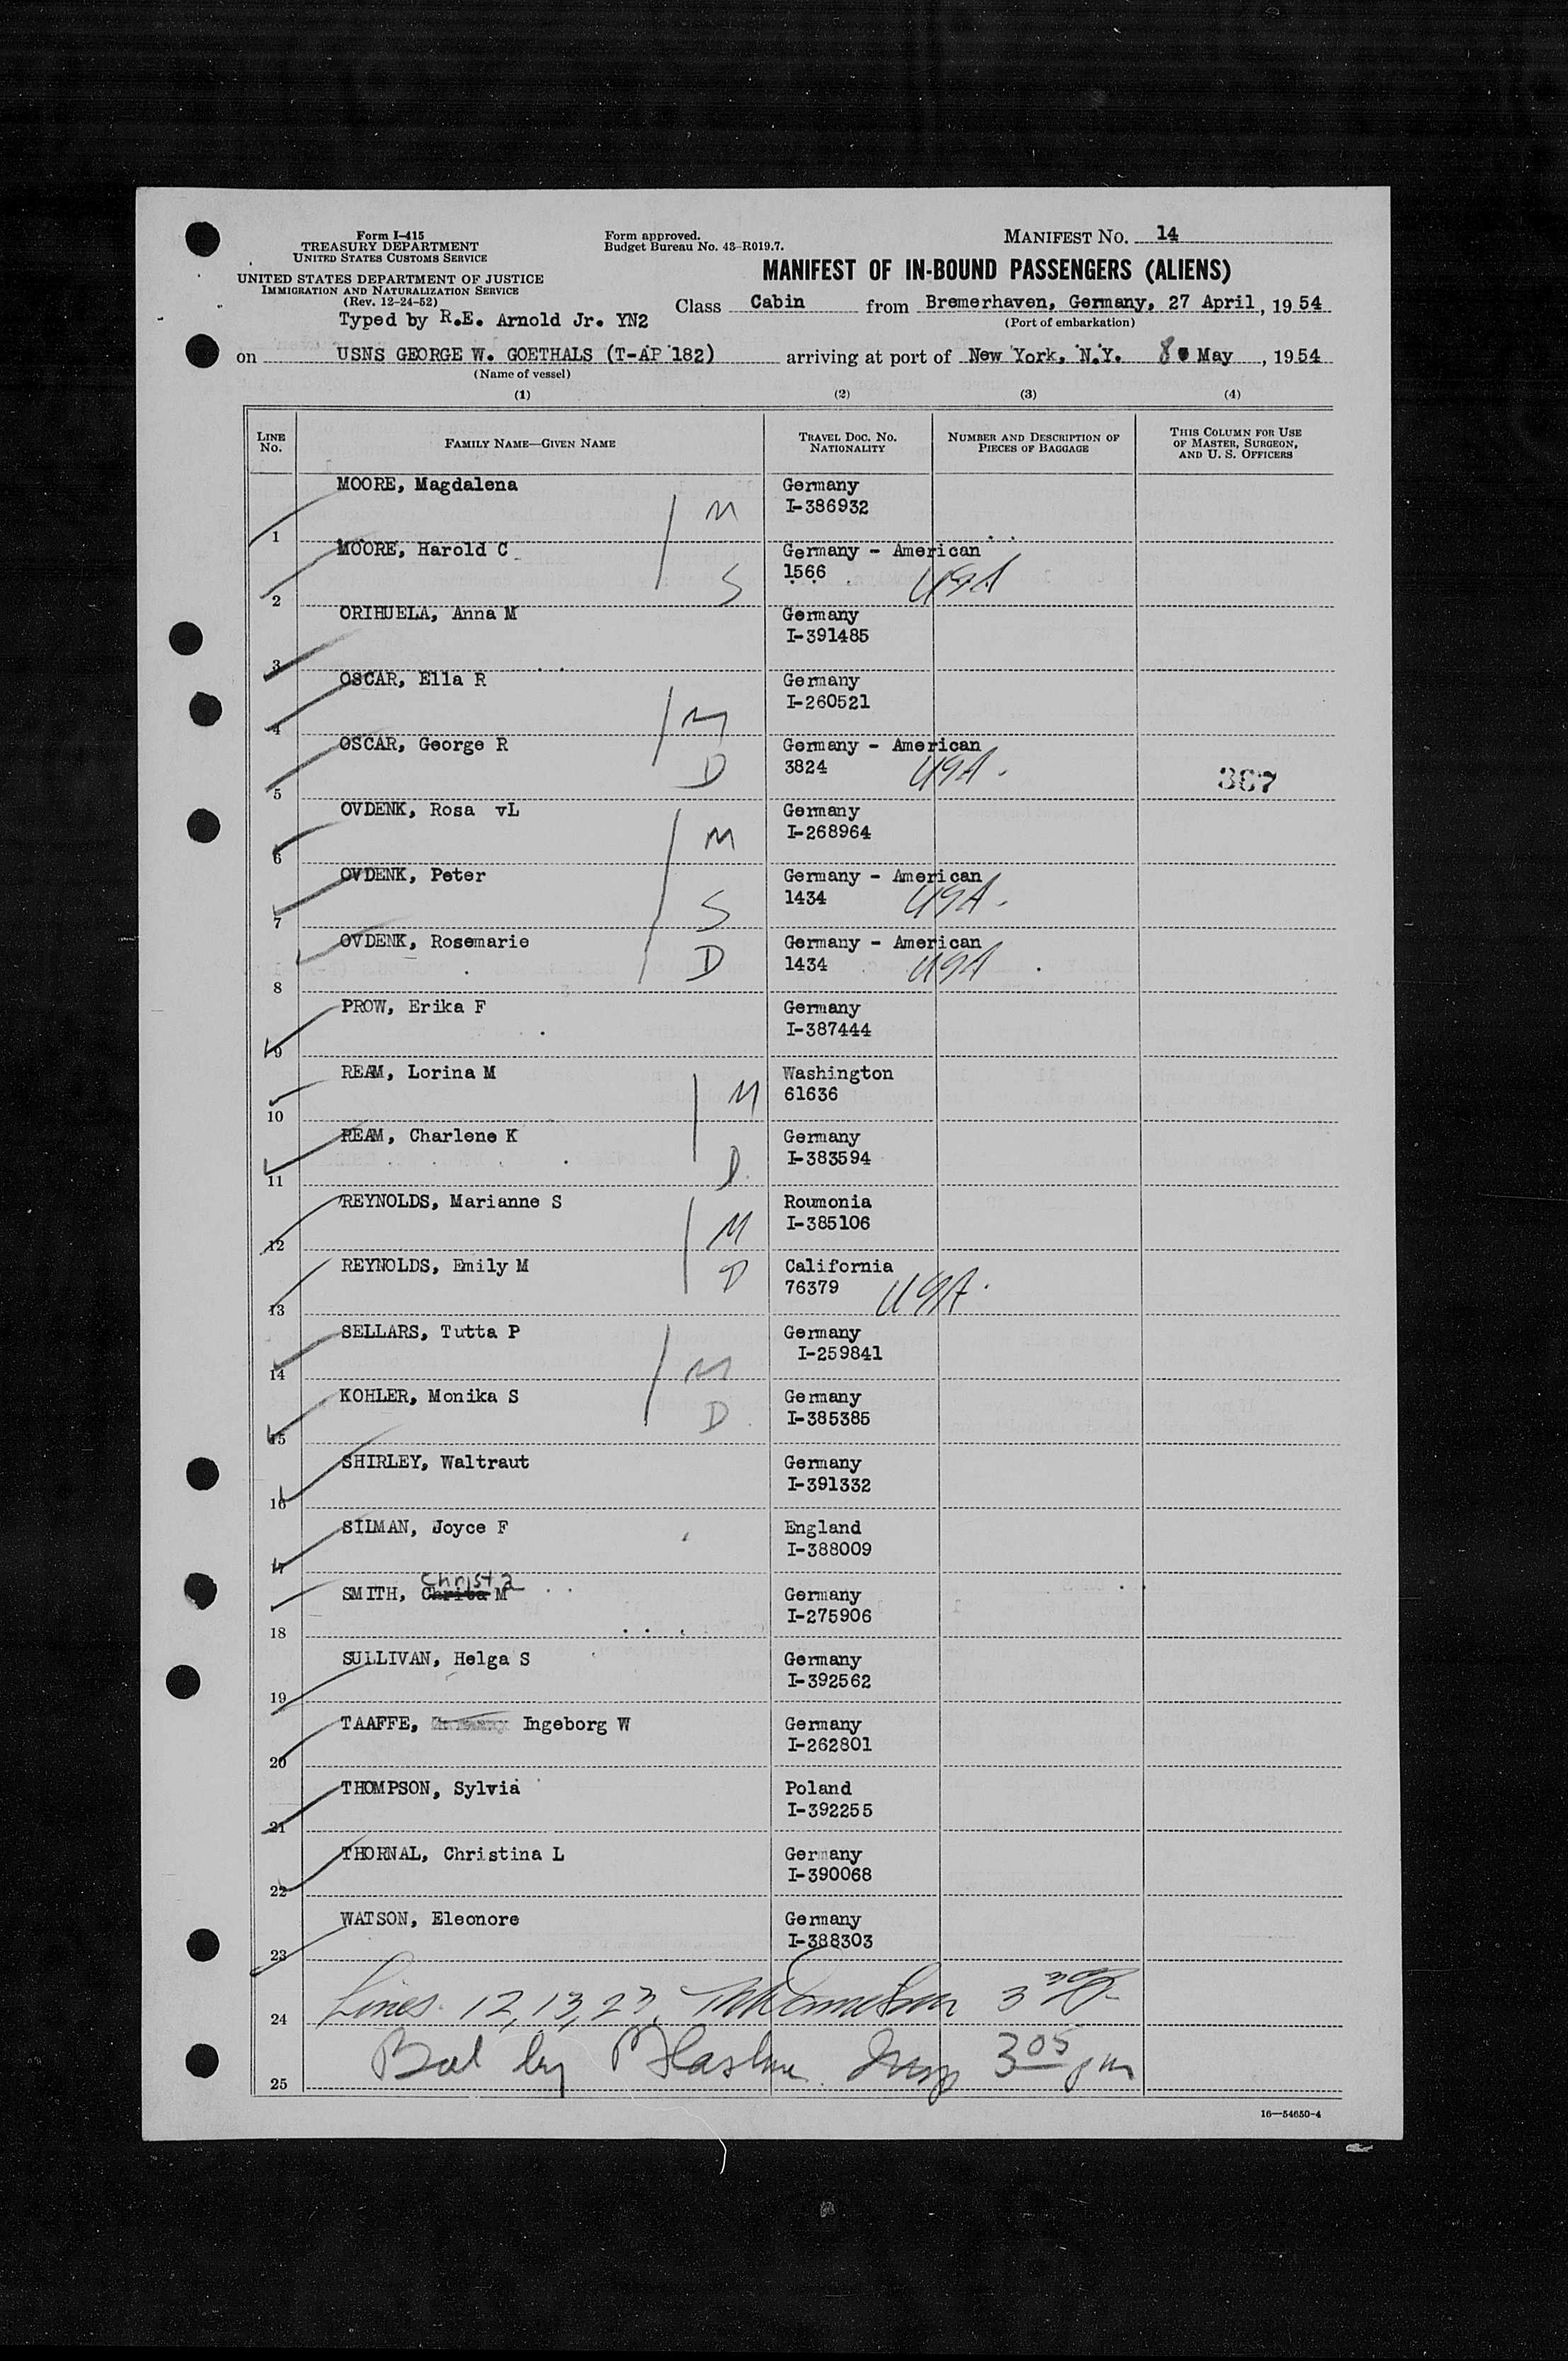 Form I-415
TREASURY DEPARTMENT
UNITED STATES CUSTOMS SERVICE
UNITED STATES DEPARTMENT OF JUSTICE
IMMIGRATION AND NATURALIZATION SERVICE
(Rev. 12-24-52)
Typed by R.E. Arnold Jr. YN2
Form approved.
Budget Bureau No. 43-R019.7.
MANIFEST NO. 14
MANIFEST OF IN-BOUND PASSENGERS (ALIENS)
Class Cabin from Bremerhaven, Germany, 27 April, 1954
(Port of embarkation)
on USNS GEORGE W. GOETHALS (T-AP 182) arriving at port of New York, N.Y. 8 May, 1954
(Name of vessel)
(1) (2) (3) (4)
LINE NO. FAMILY NAME—GIVEN NAME TRAVEL DOC. NO. NATIONALITY NUMBER AND DESCRIPTION OF PIECES OF BAGGAGE THIS COLUMN FOR USE OF MASTER, SURGEON, AND U. S. OFFICERS
MOORE, Magdalena Germany
1 M I-386932
MOORE, Harold C Germany - American
2 S 1566 USA
ORIHUELA, Anna M Germany
3 I-391485
OSCAR, Ella R Germany
4 M I-260521
OSCAR, George R Germany - American
5 D 3824 USA 367
OVDENK, Rosa vL Germany
6 M I-268964
OVDENK, Peter Germany - American
7 S 1434 USA
OVDENK, Rosemarie Germany - American
8 D 1434 USA
PROW, Erika F Germany
9 I-387444
REAM, Lorina M Washington
10 M 61636
REAM, Charlene K Germany
11 D I-383594
REYNOLDS, Marianne S Roumonia
12 M I-385106
REYNOLDS, Emily M California
13 D 76379 USA
SELLARS, Tutta P Germany
14 M I-259841
KOHLER, Monika S Germany
15 D I-385385
SHIRLEY, Waltraut Germany
16 I-391332
SILMAN, Joyce F England
17 I-388009
Christa
SMITH, Chrita M Germany
18 I-275906
SULLIVAN, Helga S Germany
19 I-392562
TAAFFE, Ingeborg W Germany
20 I-262801
THOMPSON, Sylvia Poland
21 I-392255
THORNAL, Christina L Germany
22 I-390068
WATSON, Eleonore Germany
23 I-388303
24 Lines 12, 13, 23, 3 30
25 Bal by 3 05 pm
16—54650-4